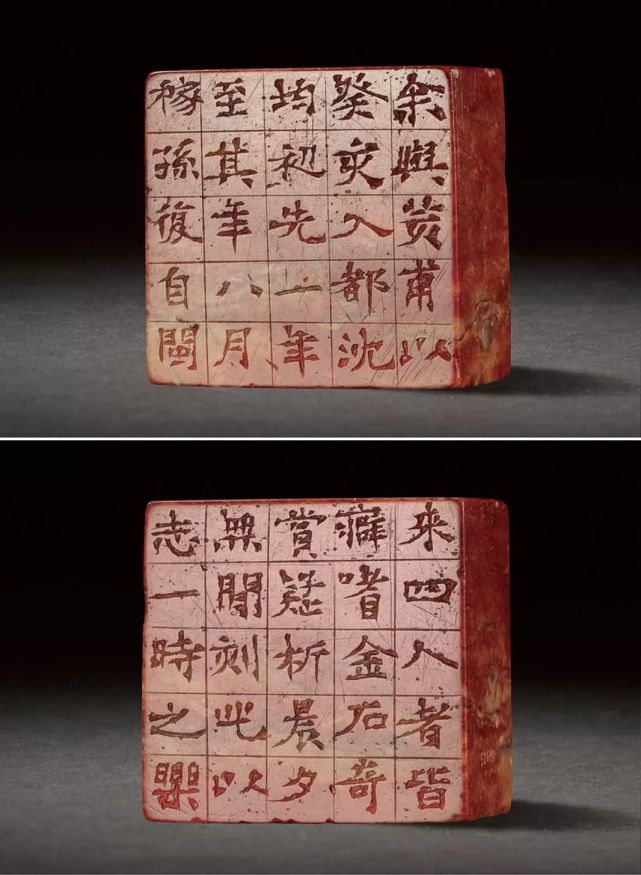 余與荄甫以
癸亥入都沈
均初先一年
至其年八月
稼孫復自閩
來四人者皆
癖嗜金石奇
賞疑析晨夕
無間刻此以
志一時之樂